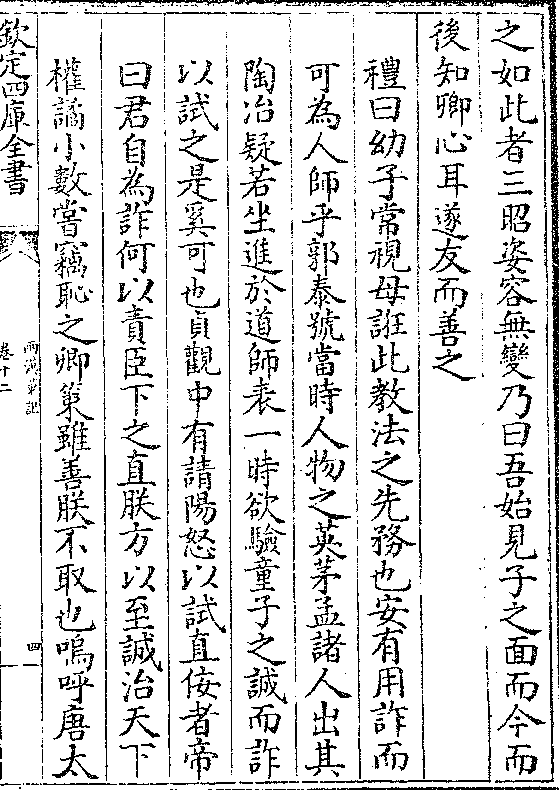 之如此者三昭姿容無變乃曰吾始見子之面而今而
後知卿心耳遂友而善之
禮曰幼子常視母誑此教法之先務也安有用詐而
可為人師乎郭泰號當時人物之英茅孟諸人出其
陶冶疑若坐進於道師表一時欲驗童子之誠而詐
以試之是奚可也貞觀中有請陽怒以試直佞者帝
曰君自為詐何以責臣下之直朕方以至誠治天下
權譎小數嘗竊恥之卿策雖善朕不取也嗚呼唐太
欽定四庫全書
卷十二
四